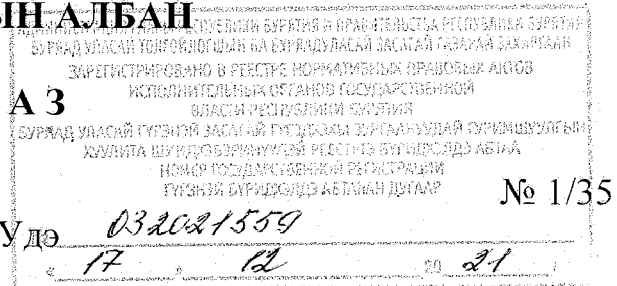 ЫН АЛБАН
АДМИНИСТРАЦИЯ ГЛАВЫ РЕСПУБЛИКИ БУРЯТИЯ И ПРАВИТЕЛЬСТВА РЕСПУБЛИКИ БУРЯТИЯ
БУРЯАД УЛАСАЙ ТОЛГОЙЛОГШЫН БА БУРЯАД УЛАСАЙ ЗАСАГАЙ ГАЗАРАЙ ЗАХИРГААН
ЗАРЕГИСТРИРОВАНО В РЕЕСТРЕ НОРМАТИВНЫХ ПРАВОВЫХ АКТОВ
ИСПОЛНИТЕЛЬНЫХ ОРГАНОВ ГОСУДАРСТВЕННОЙ
А З
ВЛАСТИ РЕСПУБЛИКИ БУРЯТИЯ
БУРЯАД УЛАСАЙ ГҮРЭНЭЙ ЗАСАГАЙ ГҮЙСЭДХЭХЫ ЗУРГААНУУДАЙ ГУРИМШУУЛГЫН
ХУУЛИТА РЕЕСТРТЭ БҮРИДХЭЛДЭ АБТАА
НОМЕР ГОСУДАРСТВЕННОЙ РЕГИСТРАЦИИ
ГҮРЭНЭЙ БҮРИДХЭЛДЭ АБТАҺАН ДУГААР
№ 1/35
Удэ 032021559
« 17 » 12 20 21 г